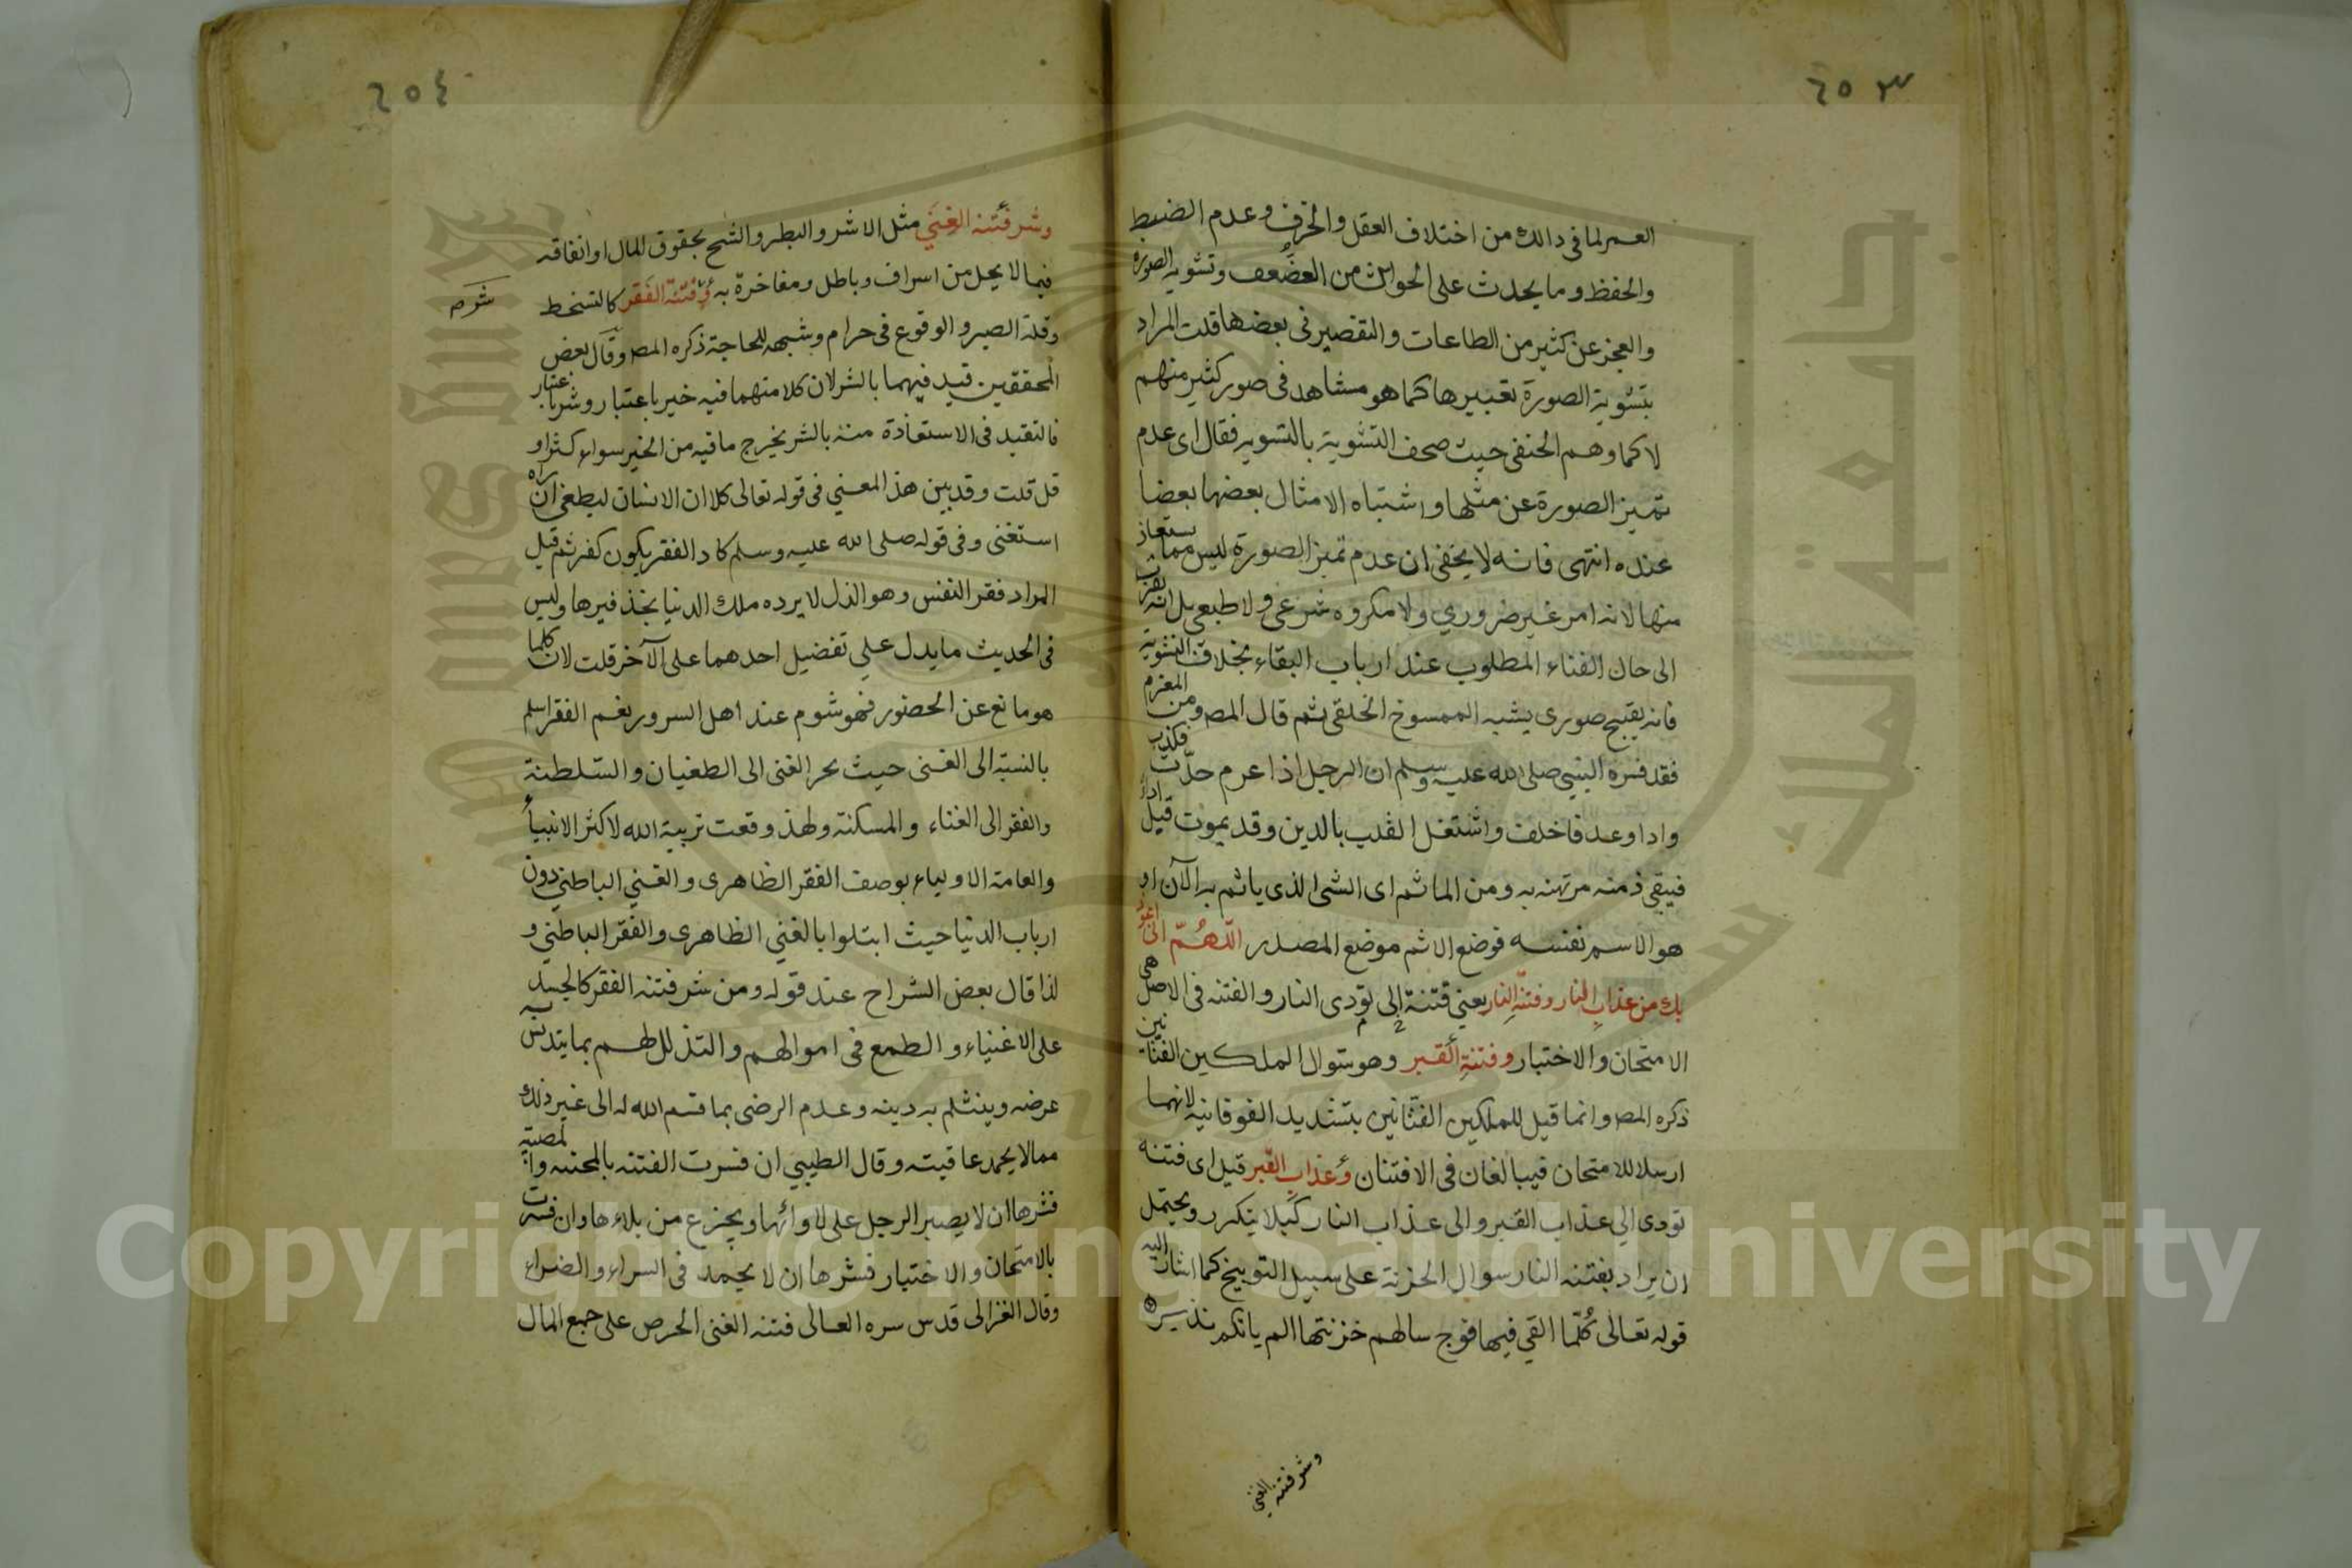 ٢٥٣
العمر لما فى دالك من اختلاف العقل والخرف وعدم الضبط
والحفظ وما يحدث على الحواس من الضعف وتشويه الصورة
والعجز عن كثير من الطاعات والتقصير فى بعضها قلت المراد
بتشوية الصورة تغييرها كما هو مشاهد فى صور كثير منهم
لا كما وهم الحنفى حيث صحف التشوية بالتسويه فقال اى عدم
تميز الصورة عن مثلها واشتباه الامثال بعضها بعضا
عنده انتهى فانه لا يخفى ان عدم تميز الصورة ليس مما يستعاذ
منها لانه امر غير ضروري ولا مكروه شرعى ولا طبعى بل انه يقرب
الى حال الفناء المطلوب عند ارباب البقاء بخلاف التشوية
فانه يقبح صورى يشبه الممسوخ الخلقى ثم قال المص ومن المغرم
فقد فسره النبي صلى الله عليه وسلم ان الرجل اذا غرم حدّث فكذب
واداوعد فاخلف واشتغل القلب بالدين وقد يموت قبل اداء
فيبقى ذمته مرتهنه به ومن الماثم اى الشى الذى ياثم به الآن او
هو الاسم نفسه فوضع الاثم موضع المصدر اللّهُمّ انى اعوذ
بك من عذاب النار وفتنة النار يعني فتنة تودى الى النار والفتنه فى الاصل هى
الامتحان والاختبار وفتنة القبر وهو سوال الملكين الفتانين
ذكره المص وانما قيل للملكين الفتّانين بتشديد الفوقانيه لانهما
ارسلا للامتحان فيبالغان فى الافتنان وعذاب القبر قيل اى فتنه
تودى الي عذاب القبر والى عذاب النار كيلا يتكرر ويحتمل
ان يراد بفتنه النار سوال الخزنة على سبيل التوبيخ كما اشار اليه
قوله تعالى كُلّما القي فيها فوج سالهم خزنتها الم ياتكم نذير
وشر فتنه الغني
٢٥٤
وشر فتنه الغنى مثل الاشر والبطر والشح بحقوق المال او انفاقه
فيما لا يحل من اسراف وباطل ومفاخرة به وفتنة الفقر كالتسخط
شر صح
وقلة الصبر والوقوع فى حرام وشبهه للحاجة ذكره المص وقال بعض
المحققين قيد فيهما بالشر لان كلا منهما فيه خير باعتبار وشر باعتبار
فالتقيد فى الاستعاذة منه بالشر يخرج ما فيه من الخير سواء كثر او
قل قلت وقد بين هذا المعني فى قوله تعالى كلا ان الانسان ليطغى ان راه
استغنى وفى قوله صلى الله عليه وسلم كاد الفقر يكون كفر ثم قيل
المراد فقر النفس وهو الذل لا يرده ملك الدنيا بحذفيرها وليس
فى الحديث ما يدل على تفضيل احدهما على الآخر قلت لان كلما
هو مانع عن الحضور فهو شوم عند اهل السرور نعم الفقر اسلم
بالنسبة الى الغنى حيث يجر الغنى الى الطغيان والسّلطنة
والفقر الى الفناء والمسكنة ولهذ وقعت تربية الله لاكثر الانبيأ
والعامة الاولياء بوصف الفقر الظاهرى والغني الباطني دون
ارباب الدنيا حيث ابتلوا بالغني الظاهرى والفقر الباطني و
لذا قال بعض الشراح عند قوله ومن شر فتنه الفقر كالحسد
على الاغنياء والطمع فى اموالهم والتذلل لهم بما يتدنس به
عرضه وينثلم به دينه وعدم الرضى بما قسم الله له الى غير ذلك
مما لا يحمد عاقبته وقال الطيبي ان فسرت الفتنه بالمحنه والمصيبة
فشرها ان لا يصبر الرجل على لاوائها ويجزع من بلاءها وان فسرت
بالامتحان والاختبار فشرها ان لا يحمد فى السراء والضراء
وقال الغزالى قدس سره العالى فتنه الغنى الحرص على جمع المال
جامعة الملك سعود
King Saud University
Copyright © King Saud University